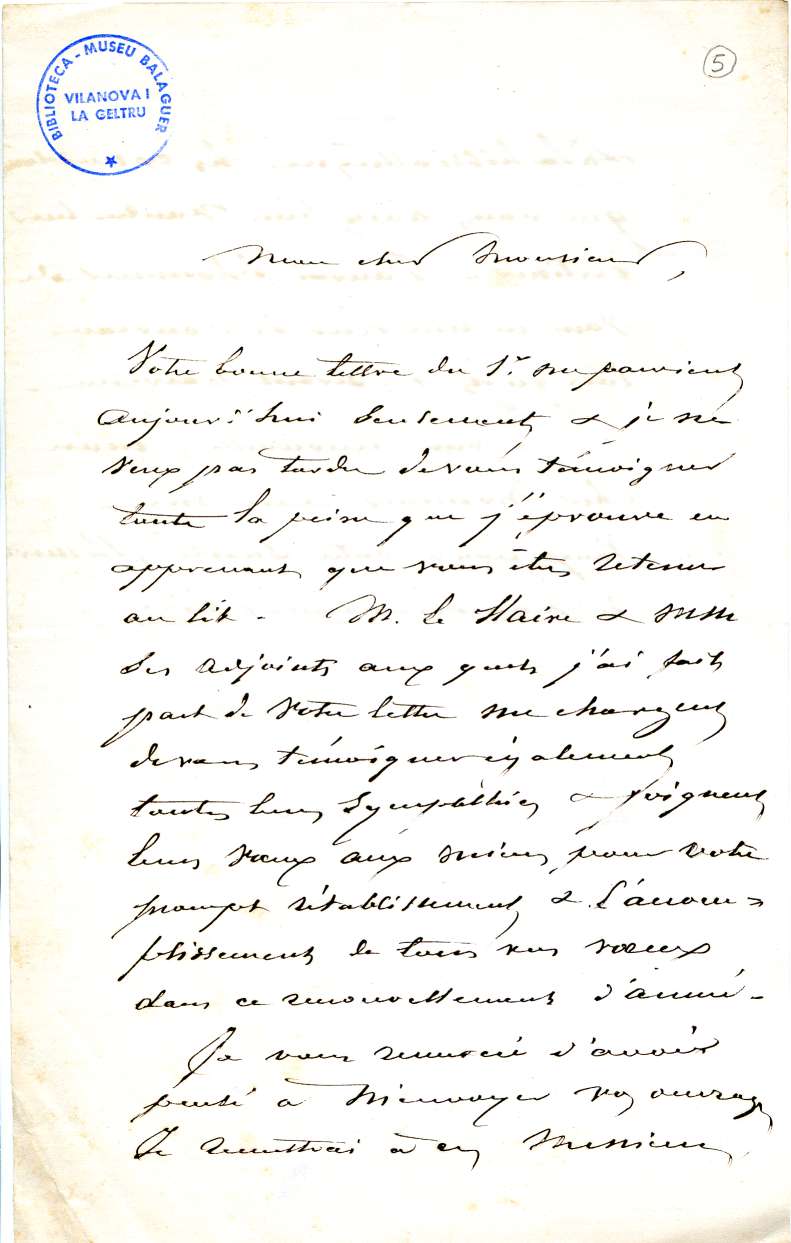 BIBLIOTECA - MUSEU BALAGUER
VILANOVA I
LA GELTRU
5
Mon cher Monsieur,
Votre bonne lettre du 1r. me parvient
aujourd'hui seulement & je ne
veux pas tarder de vous témoigner
toute la peine que j'éprouve en
apprenant que vous êtes retenu
au lit - M. le Maire & MM
ses adjoints aux quels j'ai fait
part de votre lettre me chargent
de vous témoigner également
toutes leurs sympathies & joignent
leurs vœux aux miens pour votre
prompt rétablissement & l'accom=
plissement de tous vos vœux
dans ce renouvellement d'année -
Je vous remercie d'avoir
pensé à m'envoyer vos ouvrages
Je remettrai à ces Messieurs